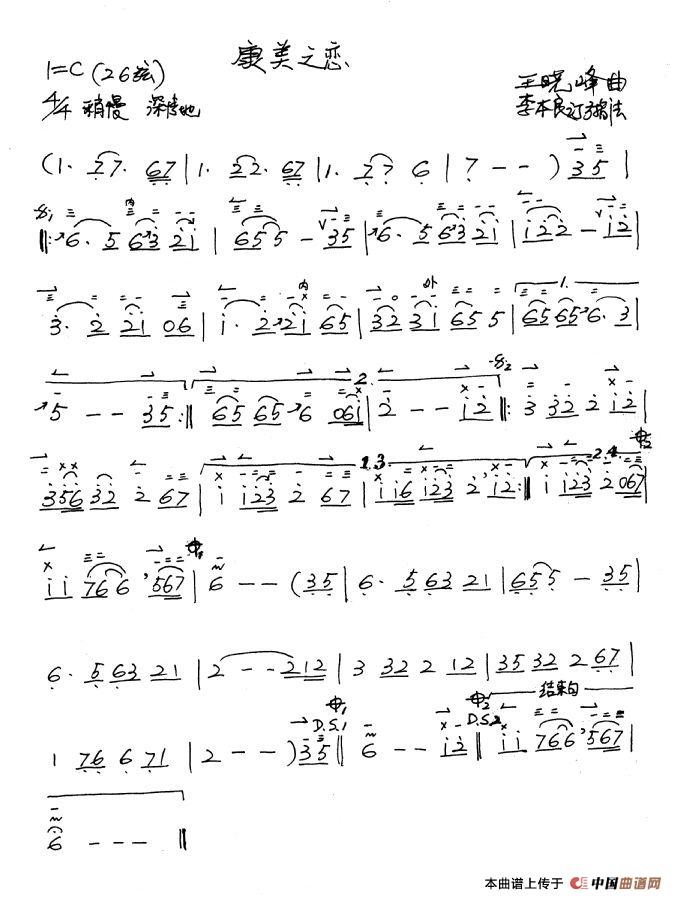 康美之恋
1=C (26弦)
4/4 稍慢 深情地
王晓峰曲
李本良订指法
(1. 27. 67 | 1. 22. 67 | 1. 77 6 | 7 - - ) 35 |
𝄋1 内
‖: 6. 5 63 21 | 655 - 35 | 6. 5 63 21 | 122 - 12 |
内 外 1.
3. 2 21 06 | 1. 2 21 65 | 32 31 65 5 | 65 65 6. 3 |
2. 𝄋2
5 - - 35 :‖ 65 65 6 061 | 2 - - 12 ‖: 3 32 2 12 |
1.3. 2.4.
356 32 2 67 | 1 123 2 67 | 1 16 123 2 12 :‖ 1 123 2 067 |
1 1 766 567 | 6 - - (35 | 6. 5 63 21 | 655 - 35 |
6. 5 63 21 | 2 - - 212 | 3 32 2 12 | 35 32 2 67 |
D.S.1 D.S.2 结束句
1 76 6 71 | 2 - - ) 35 ‖ 6 - - 12 ‖ 1 1 766 567 |
6 - - - ‖
本曲谱上传于 中国曲谱网